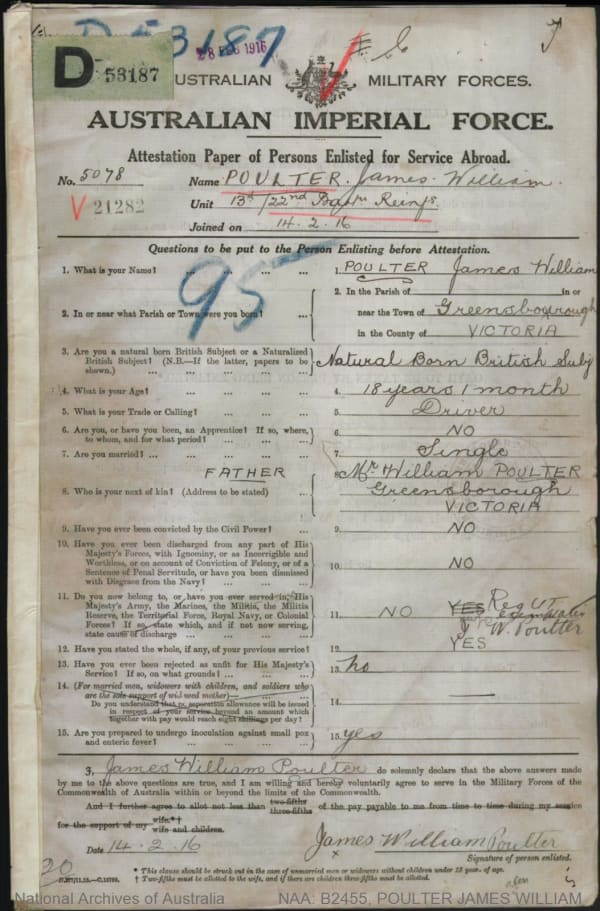 D 53187
28 FEB 1916
D 53187
AUSTRALIAN MILITARY FORCES.
AUSTRALIAN IMPERIAL FORCE.
Attestation Paper of Persons Enlisted for Service Abroad.
No. 5078 Name POULTER. James William.
V 21282 Unit 13th/22nd Battn Reinfs.
Joined on 14.2.16
Questions to be put to the Person Enlisting before Attestation.
95
1. What is your Name? ... ... ... 1. POULTER James William
2. In or near what Parish or Town were you born? ... 2. In the Parish of in or
near the Town of Greensborough
in the County of VICTORIA
3. Are you a natural born British Subject or a Naturalized
British Subject? (N.B.—If the latter, papers to be
shown.) ... ... ... ... Natural Born British Subj
4. What is your Age? ... ... ... 4. 18 years 1 month
5. What is your Trade or Calling? ... ... ... 5. Driver
6. Are you, or have you been, an Apprentice? If so, where,
to whom, and for what period? ... ... ... 6. NO
7. Are you married? ... ... ... ... 7. Single
FATHER 8. Mr. William POULTER
8. Who is your next of kin? (Address to be stated) ... Greensborough
VICTORIA
9. Have you ever been convicted by the Civil Power? ... 9. NO
10. Have you ever been discharged from any part of His
Majesty's Forces, with Ignominy, or as Incorrigible and
Worthless, or on account of Conviction of Felony, or of a
Sentence of Penal Servitude, or have you been dismissed
with Disgrace from the Navy? ... ... ... 10. NO
11. Do you now belong to, or have you ever served in, His
Majesty's Army, the Marines, the Militia, the Militia
Reserve, the Territorial Force, Royal Navy, or Colonial
Forces? If so, state which, and if not now serving,
state cause of discharge ... ... ... 11. NO YES
J. W. Poulter
12. Have you stated the whole, if any, of your previous service? 12. YES
13. Have you ever been rejected as unfit for His Majesty's
Service? If so, on what grounds? ... ... ... 13. No
14. (For married men, widowers with children, and soldiers who
are the sole support of widowed mother)—
Do you understand that no separation allowance will be issued
in respect of your service beyond an amount which
together with pay would reach eight shillings per day? 14.
15. Are you prepared to undergo inoculation against small pox
and enteric fever? ... ... ... ... 15. yes
I, James William Poulter do solemnly declare that the above answers made
by me to the above questions are true, and I am willing and hereby voluntarily agree to serve in the Military Forces of the
Commonwealth of Australia within or beyond the limits of the Commonwealth.
And I further agree to allot not less than two-fifths three-fifths of the pay payable to me from time to time during my service
for the support of my wife.*†
wife and children.
Date 14.2.16 James William Poulter
Signature of person enlisted.
* This clause should be struck out in the case of unmarried men or widowers without children under 18 years of age.
† Two-fifths must be allotted to the wife, and if there are children three-fifths must be allotted.
National Archives of Australia NAA: B2455, POULTER JAMES WILLIAM